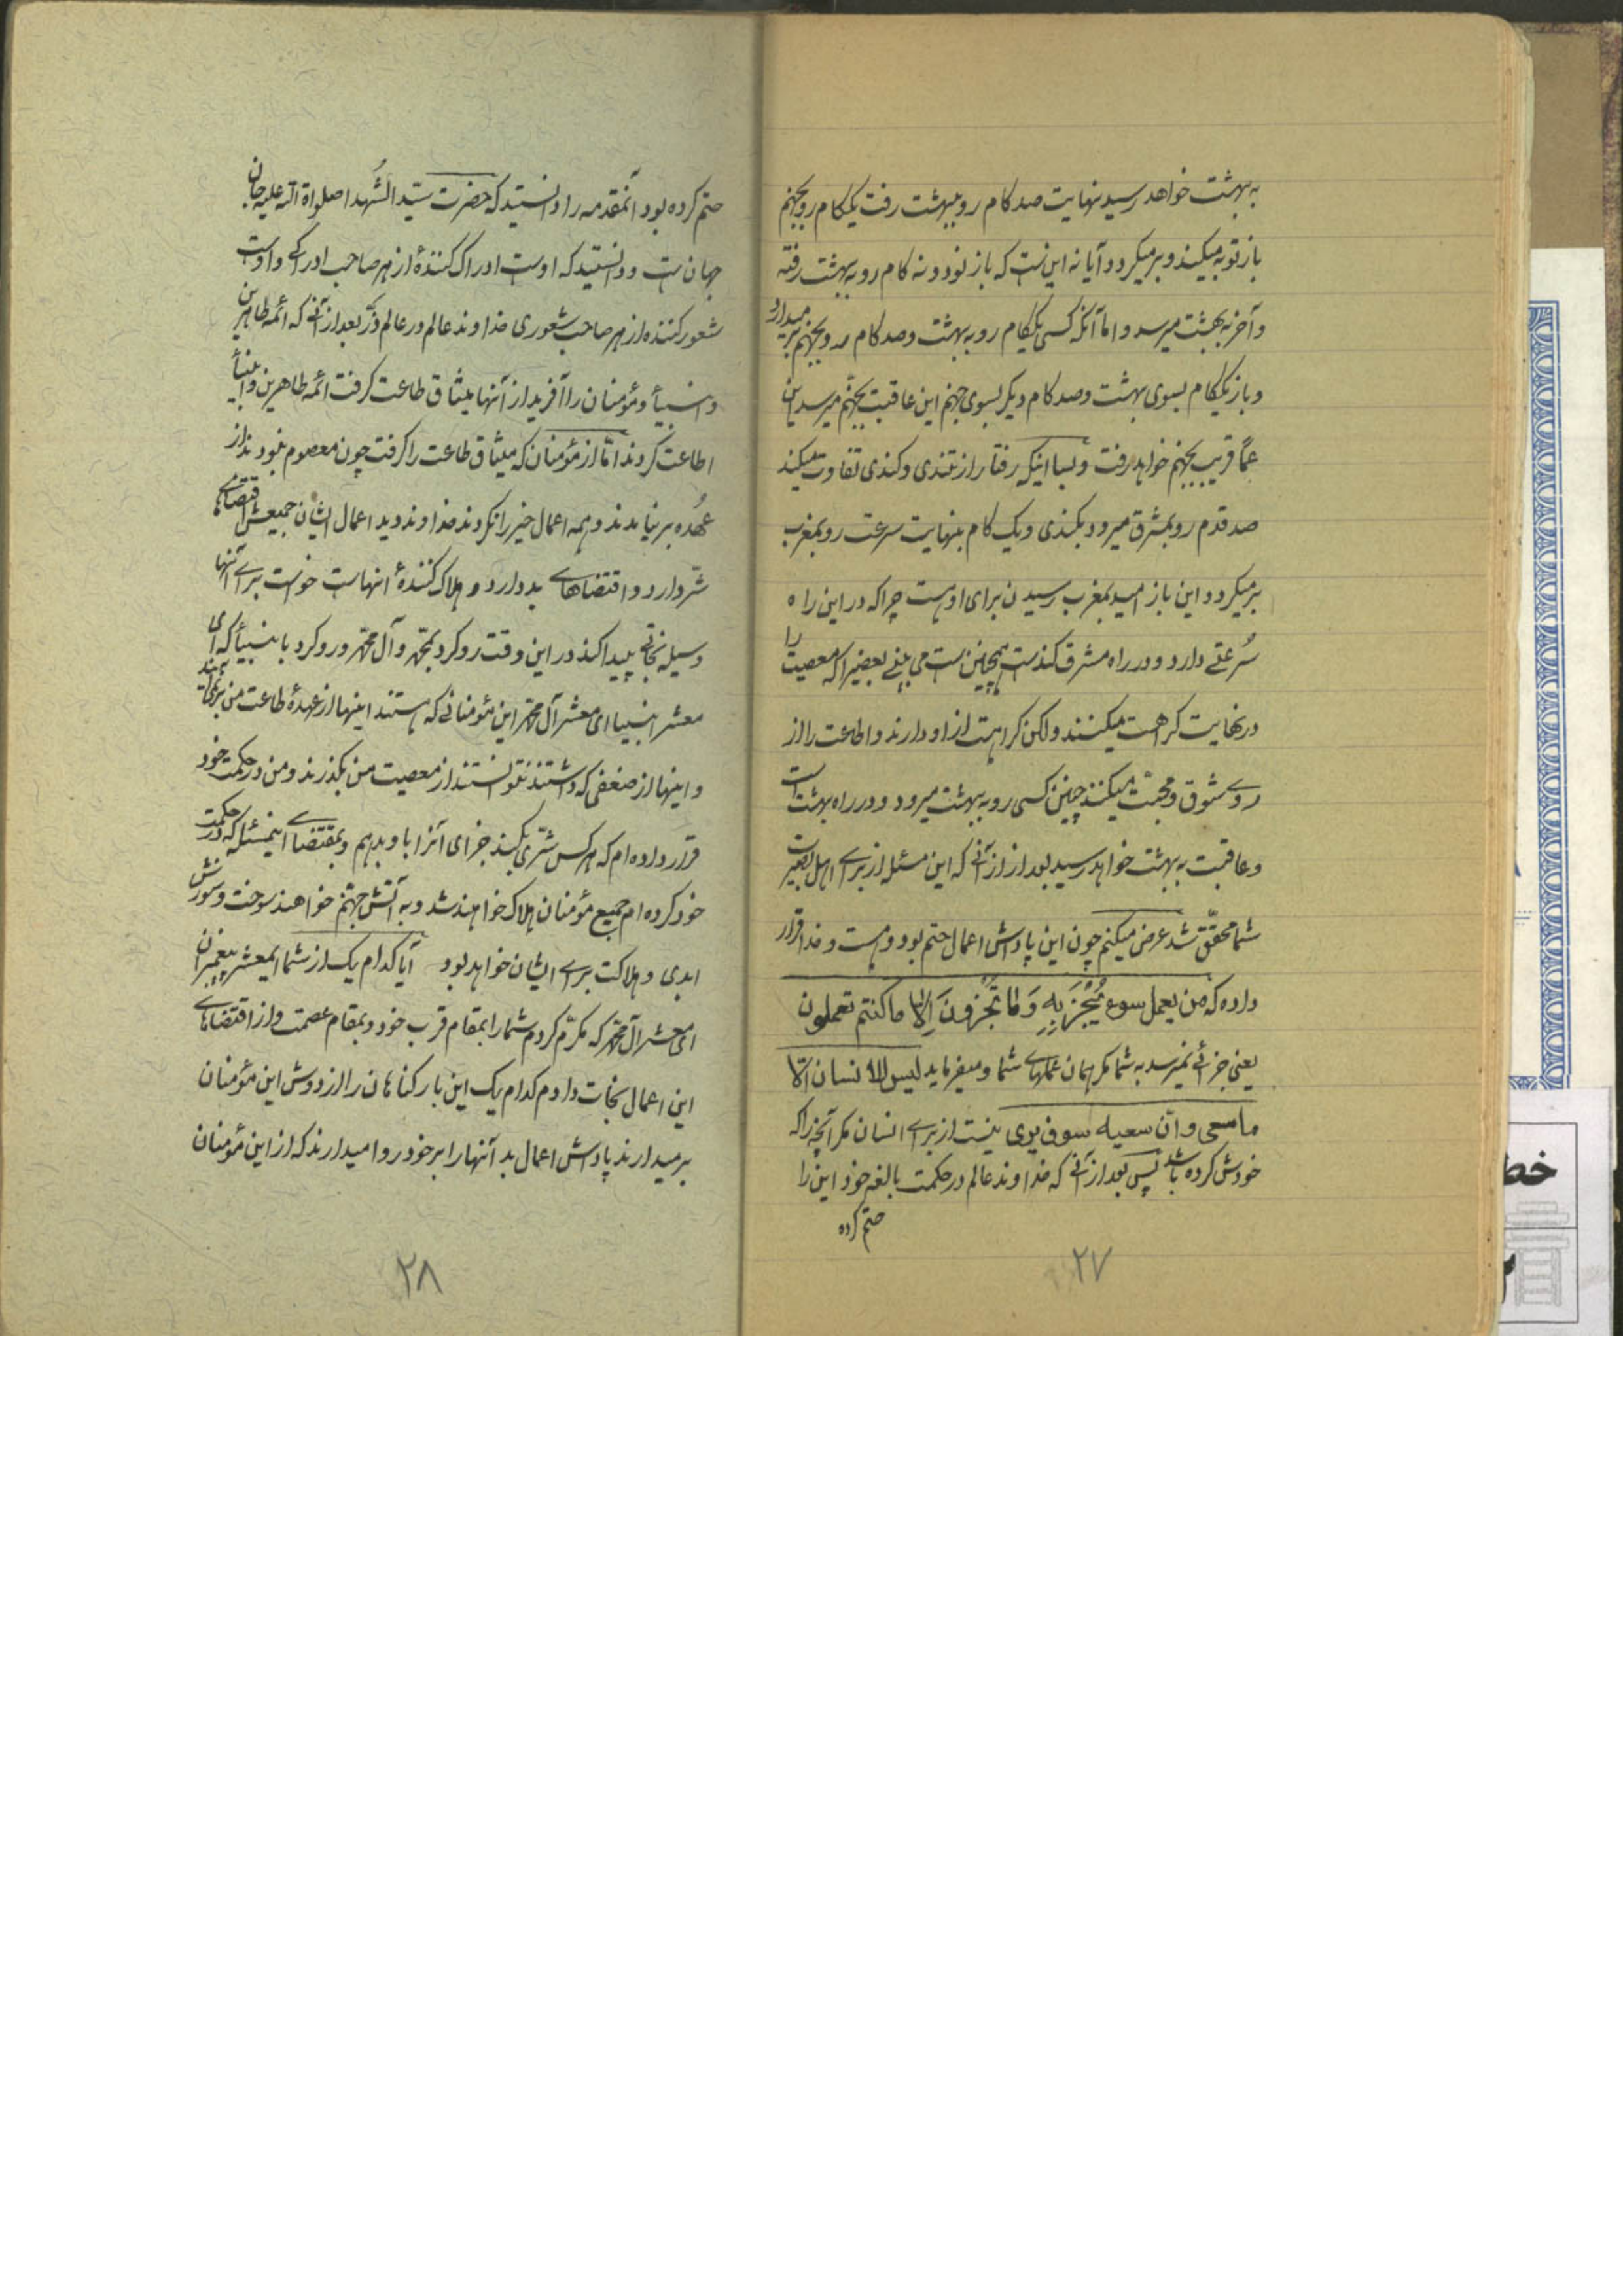 به بهشت خواهد رسید نهایت صد کام رو ببهشت رفت یککام رو بجهنم
باز توبه میکند و برمیکردد آیا نه این است که باز نود و نه کام رو به بهشت رفته
و آخر به بهشت میرسد و اما آنکه کسی یککام رو به بهشت و صد کام رو بجهنم برمیدارد
و باز یککام بسوی بهشت و صد کام دیکر بسوی جهنم این عاقبت بجهنّم میرسد این
عمّا قریب بجهنم خواهد رفت و بسا اینکه رفتار از تندی و کندی تفاوت میکند
صد قدم رو بمشرق میرود بکندی و یک کام بنهایت سرعت رو بمغرب
برمیکردد این باز امید بمغرب رسیدن برای او هست چرا که در این راه
سُرعتی دارد و در راه مشرق کند است همچنین است می بینی بعضیرا که معصیت را
در نهایت کراهت میکنند ولکن کراهت از او دارند و اطاعت را از
روی شوق و محبّت میکنند چنین کسی رو به بهشت میرود و در راه بهشت است
و عاقبت به بهشت خواهد رسید بعد از آنی که این مسئله از برای اهل بصیرت
شما محقّق شد عرض میکنم چون این پاداش اعمال حتم بود و هست و خدا قرار
داده که من یعمل سوء یُجْزَ بِهِ وَ ما تُجْزَونَ اِلّا ما کنتم تعملون
یعنی جزائی نمیرسد به شما مکر همان عملهای شما و میفرماید لیس للانسان الّا
ما سعی و انّ سعیه سوف یری نیست از برای انسان مکر آنچه را که
خودش کرده باشد پس بعد از آنی که خداوند عالم در حکمت بالغه خود این را
حتم کرده
۲۷
حتم کرده بود آنمقدمه را دانستید که حضرت سیّد الشُهدا صلواة الله علیه جان
جهان است و دانستید که اوست ادراک کنندهٔ از هر صاحب ادراکی و اوست
شعور کننده از هر صاحب شعوری خداوند عالم در عالم ذرّ بعد از آنی که ائمه طاهرین
و انبیأ و مؤمنان را آفرید از آنها میثاق طاعت کرفت ائمه طاهرین و انبیأ
اطاعت کردند امّا از مؤمنان که میثاق طاعت را کرفت چون معصوم نبودند از
عُهده برنیامدند و همه اعمال خیر را نکردند خداوند دید اعمال ایشان جمیعش اقتضاهای
شرّ دارد و اقتضاهای بد دارد و هلاک کنندهٔ انهاست خواست برای آنها
وسیله نجاتی پیدا کند در این وقت رو کرد بمحمّد و آل محمّد و رو کرد بانبیأ که ای
معشر انبیا ای معشر آل محمّد این مؤمنانی که هستند اینها از عهدهٔ طاعت من برنمی آیند
و اینها از ضعفی که داشتند نتوانستند از معصیت من بکذرند و من در حکمت خود
قرار داده ام که هر کس شرّی بکند جزای آنرا باو بدهم و بمقتضای اینمسئله که در حکمت
خود کرده ام جمیع مؤمنان هلاک خواهند شد و به آتش جهنّم خواهند سوخت و سوزش
ابدی و هلاکت برای ایشان خواهد بود آیا کدام یک از شما ایمعشر پیغمبران
ای معشر آل محمّد که مکرّم کردم شما را بمقام قرب خود و بمقام عصمت و از اقتضاهای
این اعمال نجات دادم کدام یک این بار کناهان را از دوش این مؤمنان
برمیدارند پاداش اعمال بد آنها را بر خود روا میدارند که از این مؤمنان
۲۸